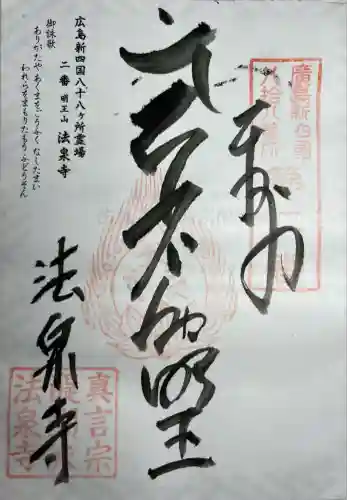 廣島新四國
八拾八ヶ所
奉拝
不動明王
広島新四国八十八ヶ所霊場
二番 明王山 法泉寺
御詠歌
ありがたや あくまをごうぶく なしたまい
われらをまもりたもう ふどうそん
法泉寺
真言宗
法泉寺